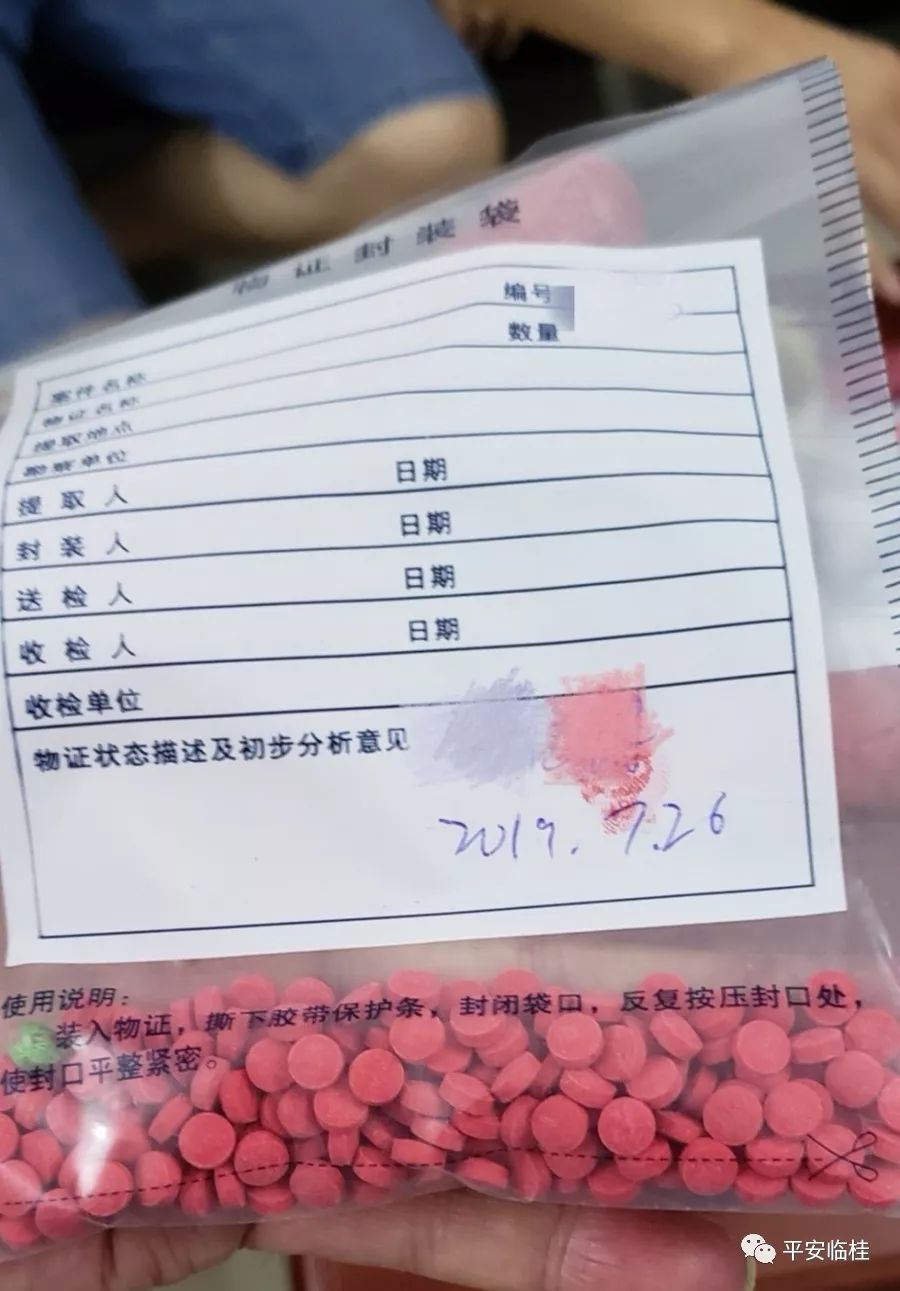 物证封装袋
编号
数量
案件名称
物证名称
提取地点
勘察单位
提取人 日期
封装人 日期
送检人 日期
收检人 日期
收检单位
物证状态描述及初步分析意见
2019.7.26
使用说明：
装入物证，撕下胶带保护条，封闭袋口，反复按压封口处，
使封口平整紧密。
平安临桂